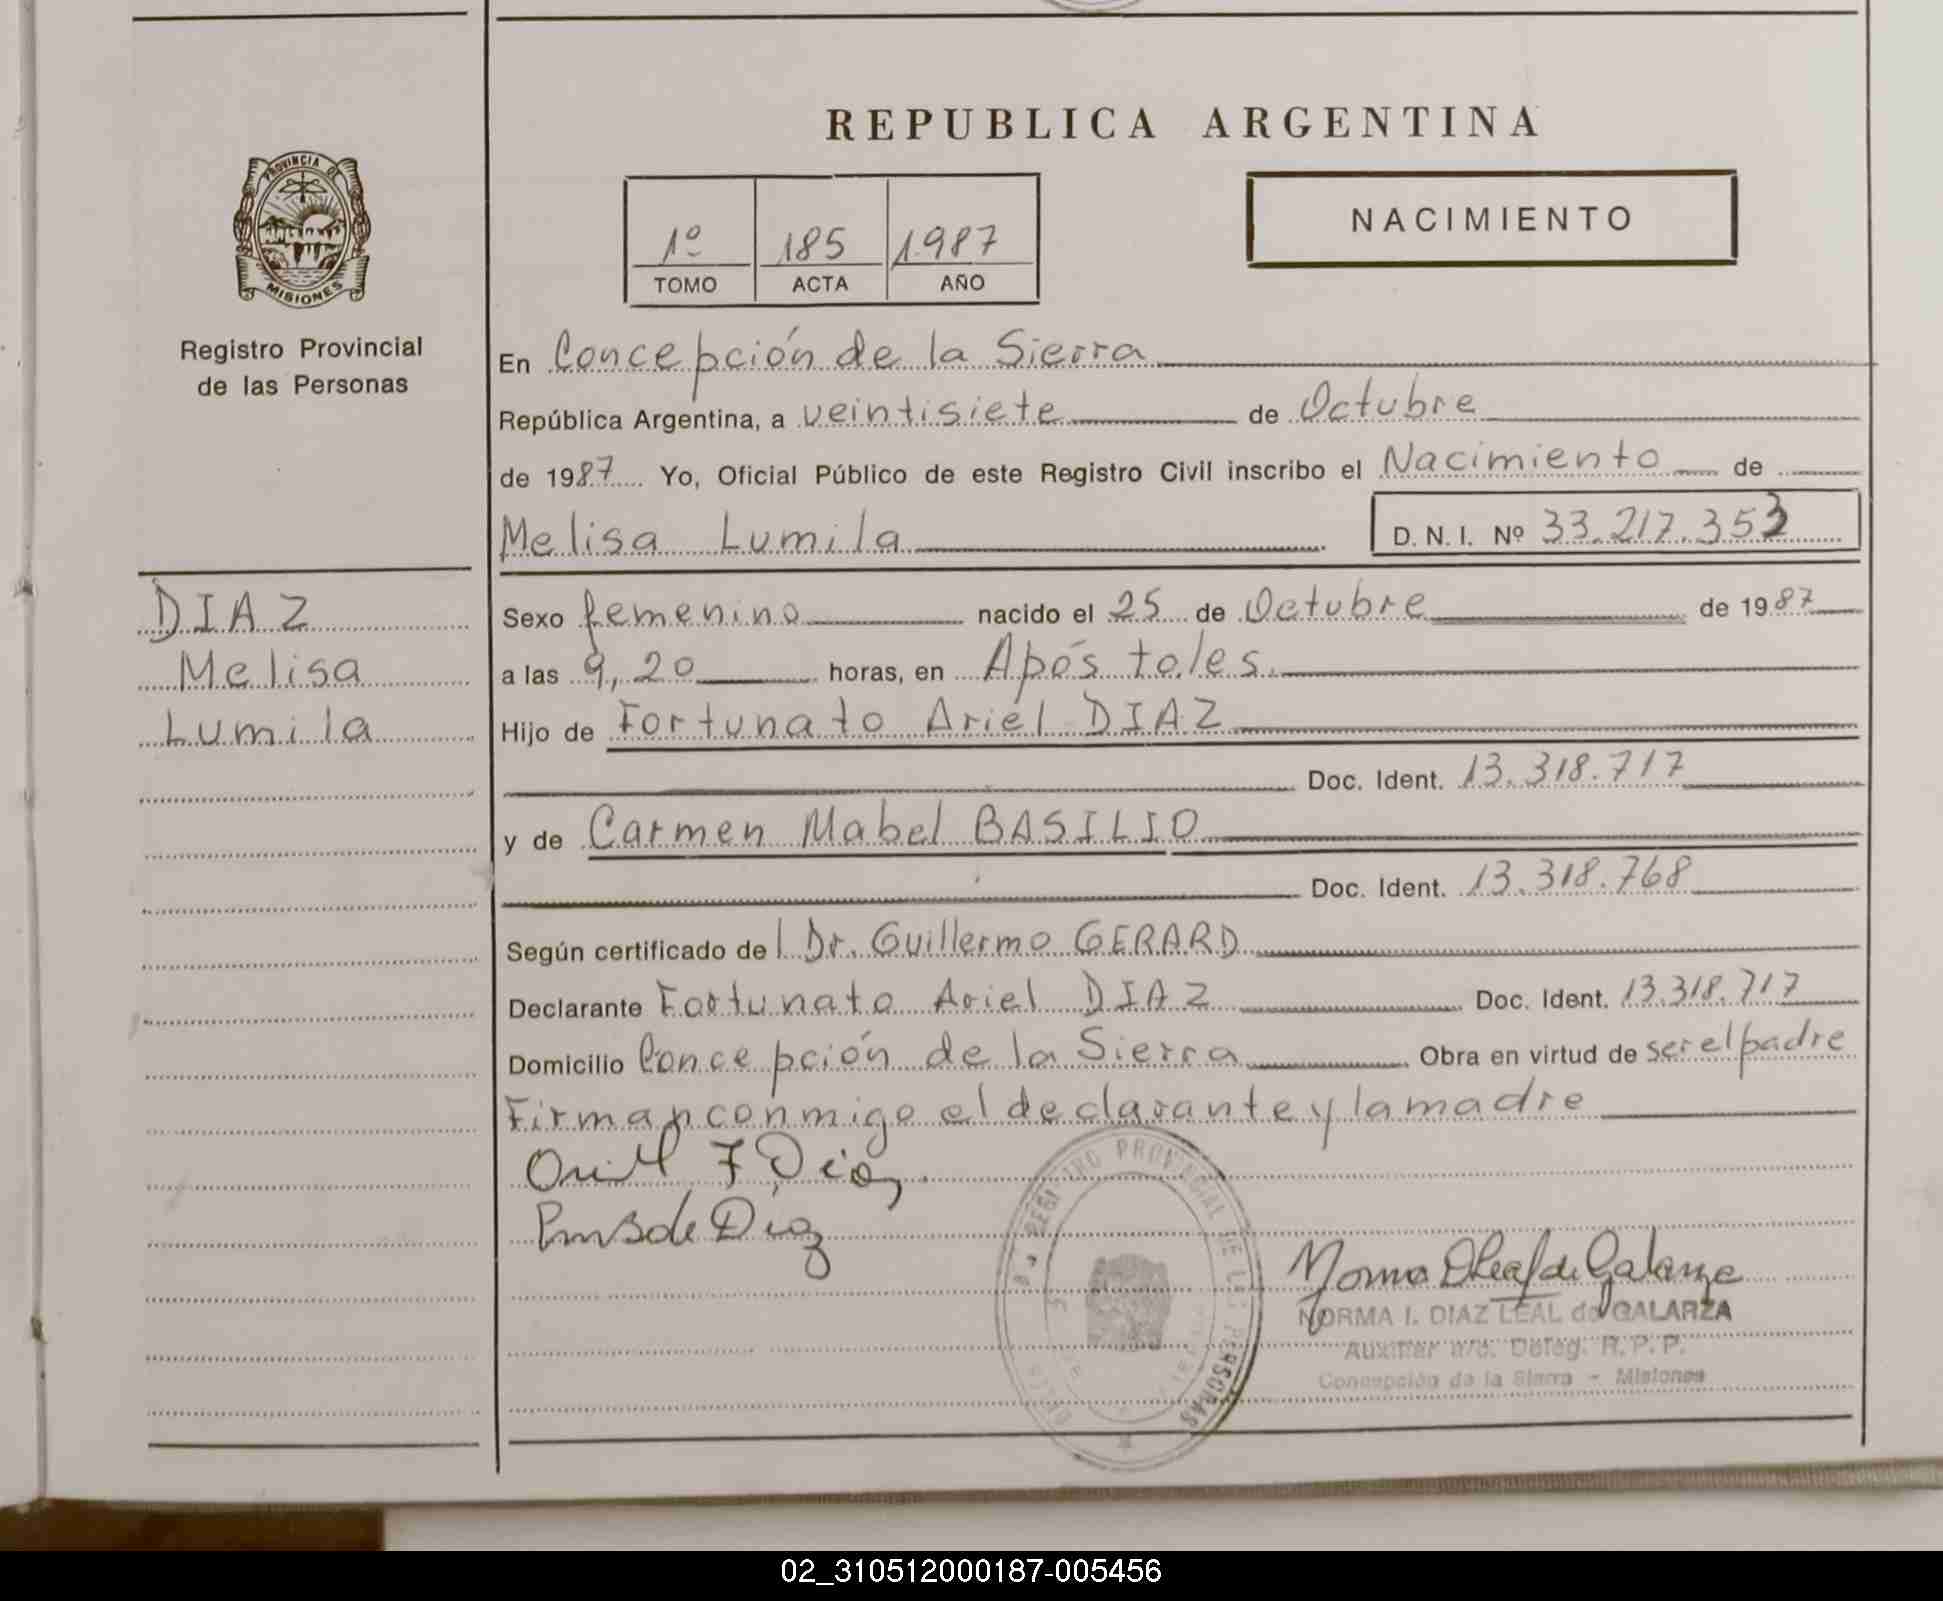 REPUBLICA ARGENTINA
PROVINCIA DE
MISIONES
Registro Provincial
de las Personas
1º 185 1987
TOMO ACTA AÑO
NACIMIENTO
En Concepción de la Sierra
República Argentina, a veintisiete de Octubre
de 1987 Yo, Oficial Público de este Registro Civil inscribo el Nacimiento de
Melisa Lumila D. N. I. Nº 33.217.353
DIAZ
Melisa
Lumila
Sexo femenino nacido el 25 de Octubre de 1987
a las 9,20 horas, en Apóstoles.
Hijo de Fortunato Ariel DIAZ
Doc. Ident. 13.318.717
y de Carmen Mabel BASILIO
Doc. Ident. 13.318.768
Según certificado de l Dr. Guillermo GERARD
Declarante Fortunato Ariel DIAZ Doc. Ident. 13.318.717
Domicilio Concepción de la Sierra Obra en virtud de ser el padre
Firman conmigo el declarante y la madre
F Diaz
B de Diaz
REGISTRO PROVINCIAL DE LAS PERSONAS
Norma DLeal de Galarza
NORMA I. DIAZ LEAL de GALARZA
Auxiliar a/c. Deleg. R. P. P.
Concepción de la Sierra - Misiones
02_310512000187-005456